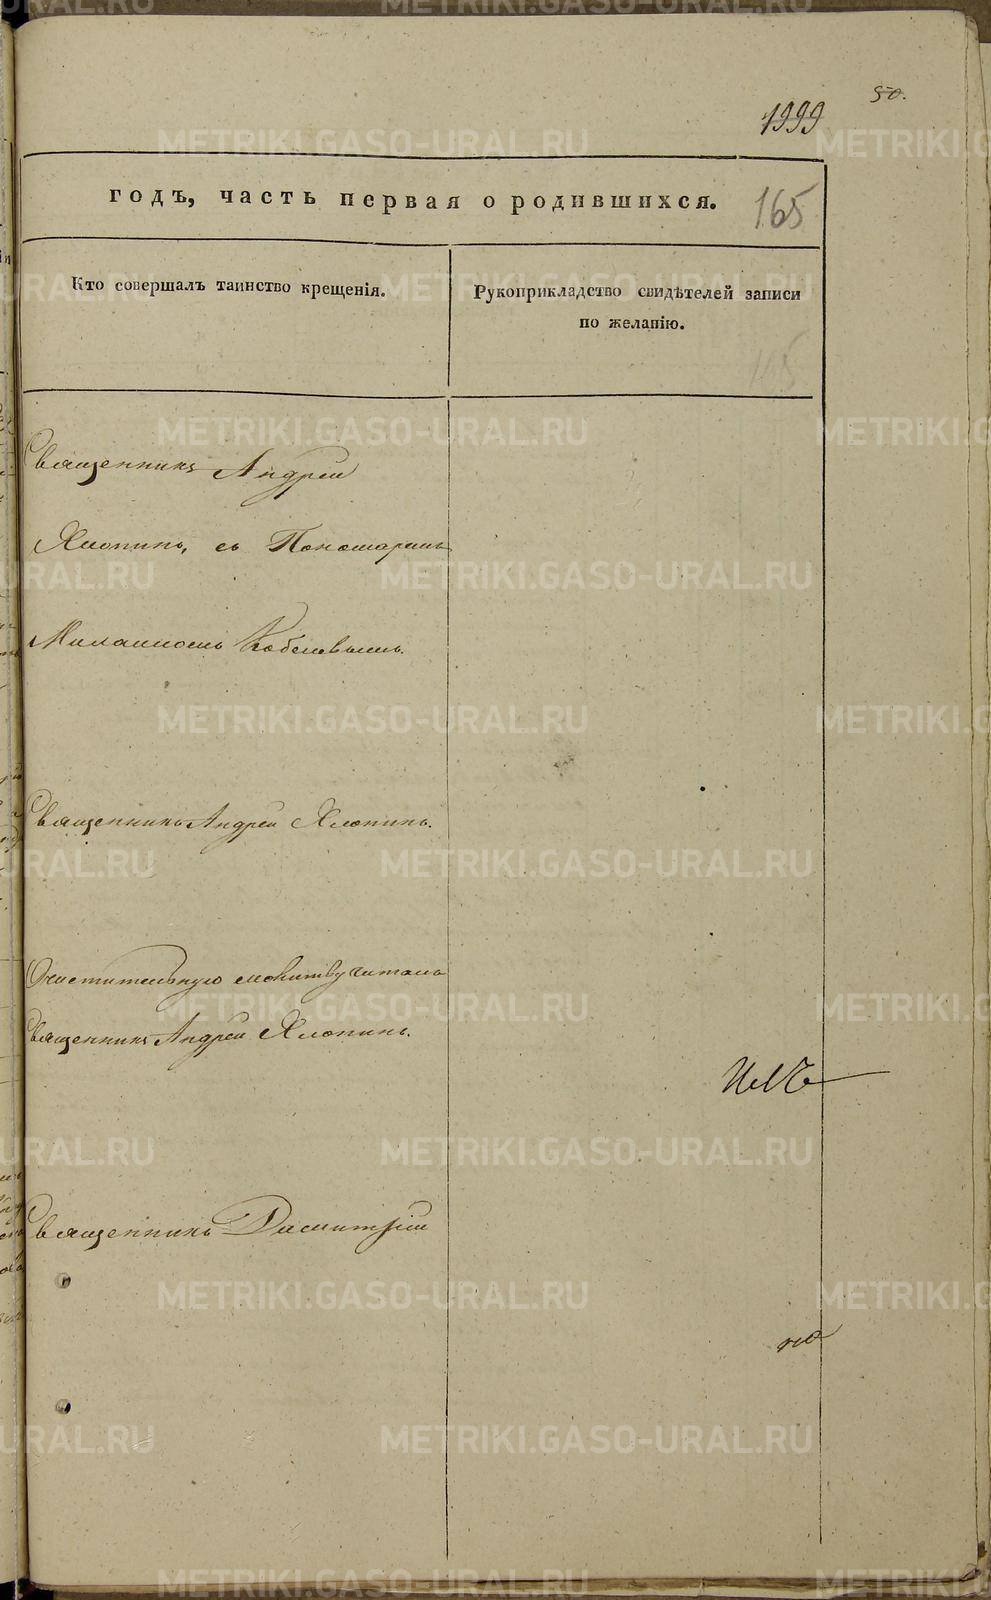 50.
1999
годъ, часть первая о родившихся.
165
Кто совершалъ таинство крещенія.
Рукоприкладство свидѣтелей записи
по желанію.
165
Священникъ Андрей
Хлопинъ, съ Пономаремъ
Кобелевымъ.
Священникъ Андрей Хлопинъ.
Очистительную молитву читалъ
Священникъ Андрей Хлопинъ.
Священникъ Димитрій
по
METRIKI.GASO-URAL.RU